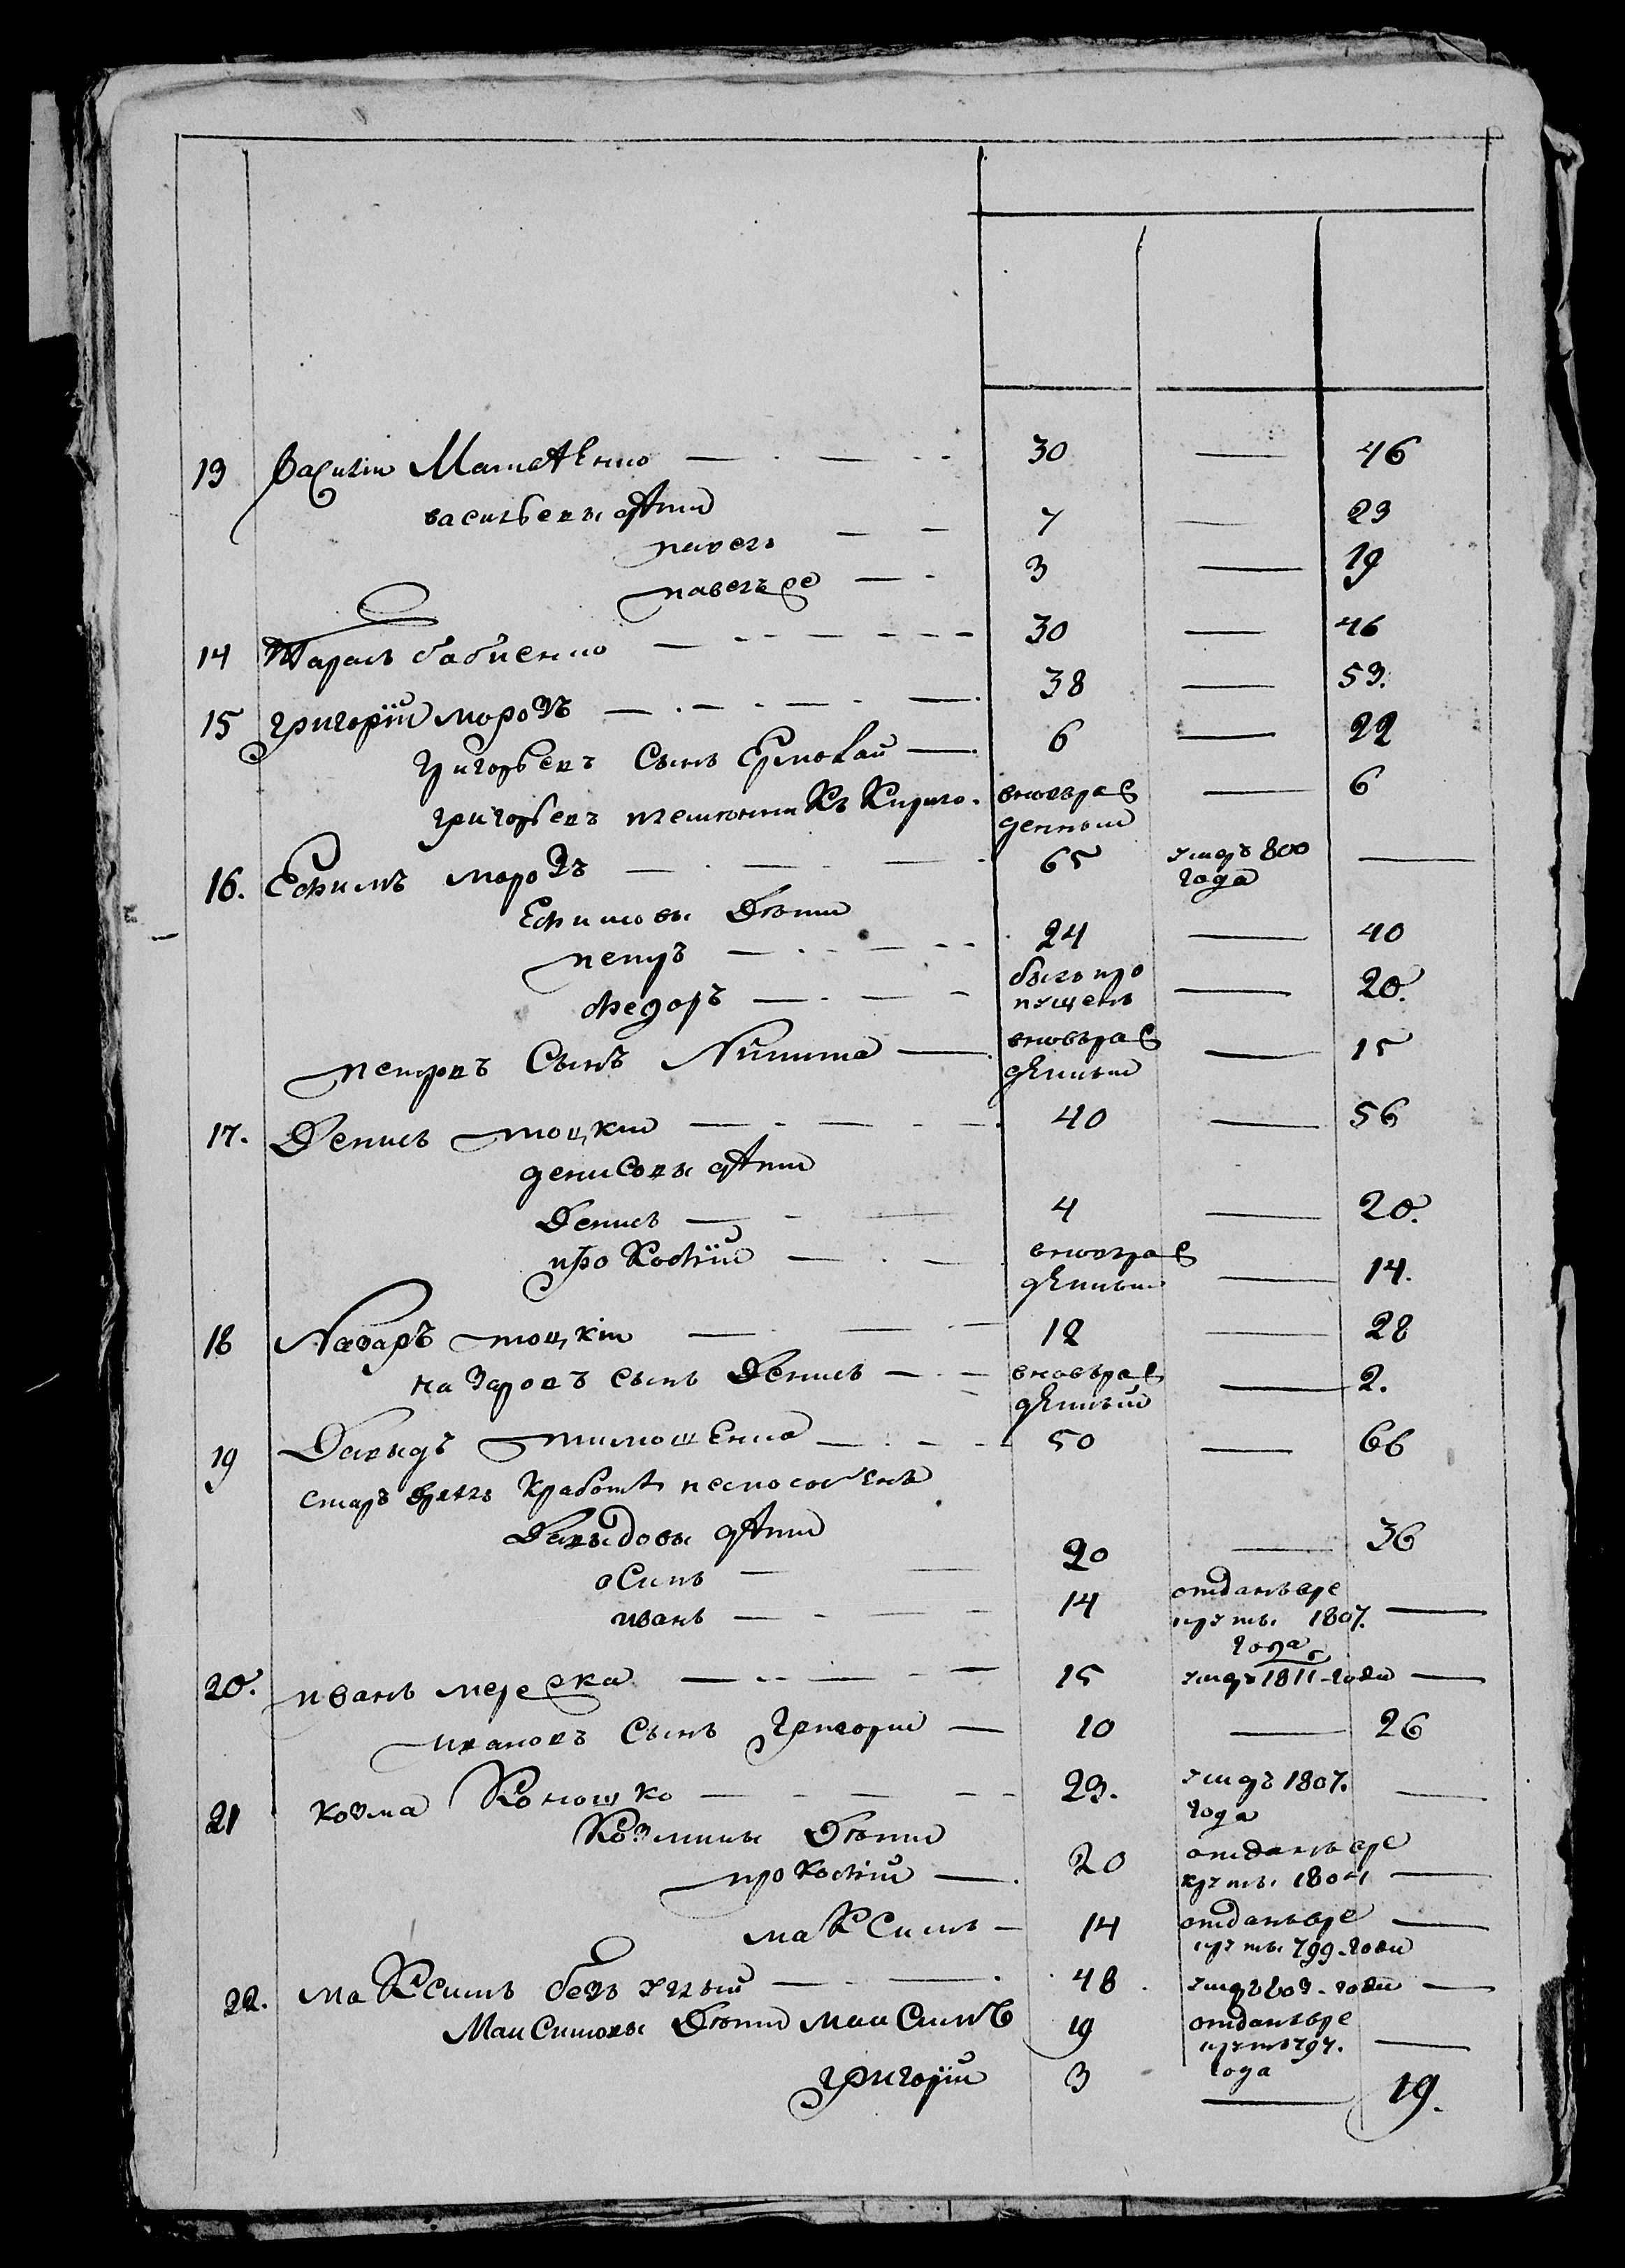 13 Василій Матвѣенко 30 — 46
васильевы дѣти
павелъ 7 — 23
павелъ же 3 — 19
14 Тарасъ бабченко 30 — 46
15 григорій морозъ 38 — 53.
григорьевъ сынъ Ермолай 6 — 22
григорьевъ племянникъ Кирило вновьрож денный — 6
16. Ефимъ морозъ 65 умеръ 800 года —
Ефимовы Дѣти
петръ 24 — 40
федоръ былъ про пущенъ — 20.
петровъ Сынъ Никита вновьрож денный — 15
17. Денисъ тоцкій 40 — 56
денисовы дѣти
Денисъ 4 — 20.
прокофій вновьрож денный — 14.
18 Назаръ тоцкій 12 — 28
назаровъ сынъ Денисъ вновьрож денный — 2.
19 Давыдъ тимошенко 50 — 66
старъ дряхлъ Кработѣ неспособенъ
Давыдовы дѣти
осипъ 20 — 36
иванъ 14 отданъ вре круты 1807. года —
20. иванъ мережка 15 умеръ 1811 года —
ивановъ Сынъ Григорій 10 — 26
21 козма Коношко 23. умеръ 1807. года —
Козмины Дѣти
прокофій 20 отданъ вре круты 1804 —
маКСимъ 14 отданъ вре круты 799 года —
22. маКСимъ безуглый 48 умеръ 803 года —
МакСимовы Дѣти макСимъ 19 отданъ вре круты 797. года —
григорій 3 — 19.